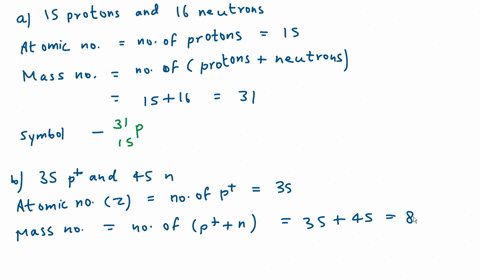 a) 15 protons and 16 neutrons
Atomic no. = no. of protons = 15
Mass no. = no. of (protons + neutrons)
= 15 + 16 = 31
Symbol - ³¹₁₅P
b) 35 p⁺ and 45 n
Atomic no. (Z) = no. of p⁺ = 35
Mass no. = no. of (p⁺ + n) = 35 + 45 = 8